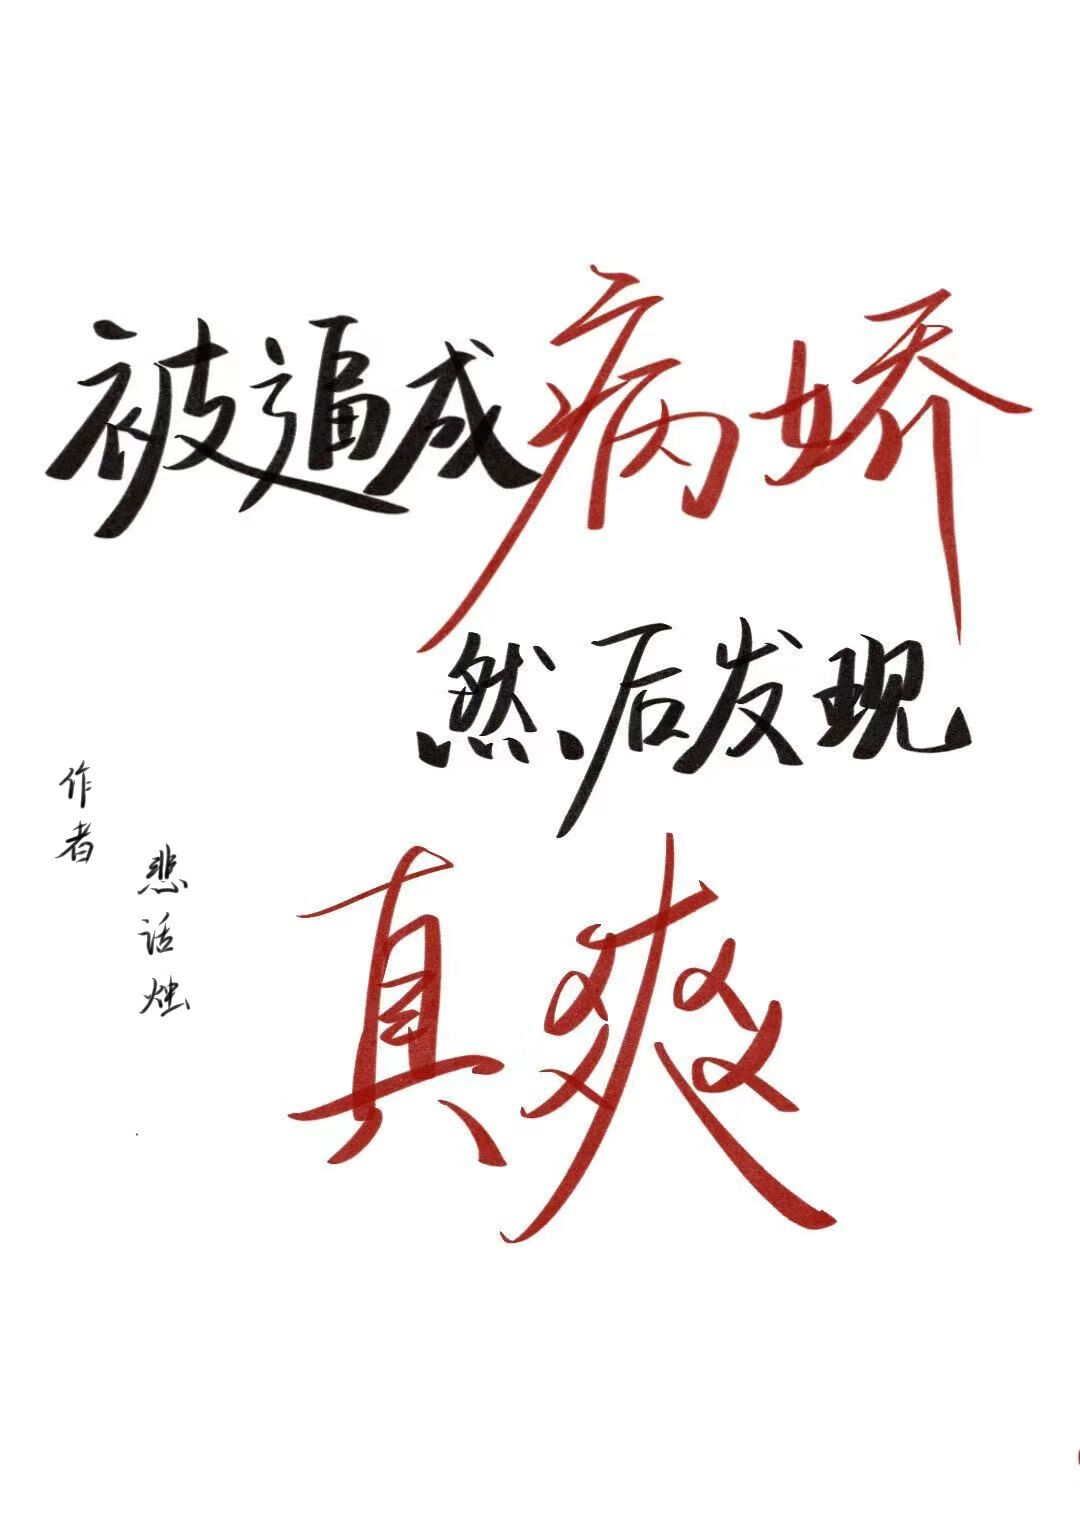 被逼成病娇
然后发现
真爽
作者
悲话烛